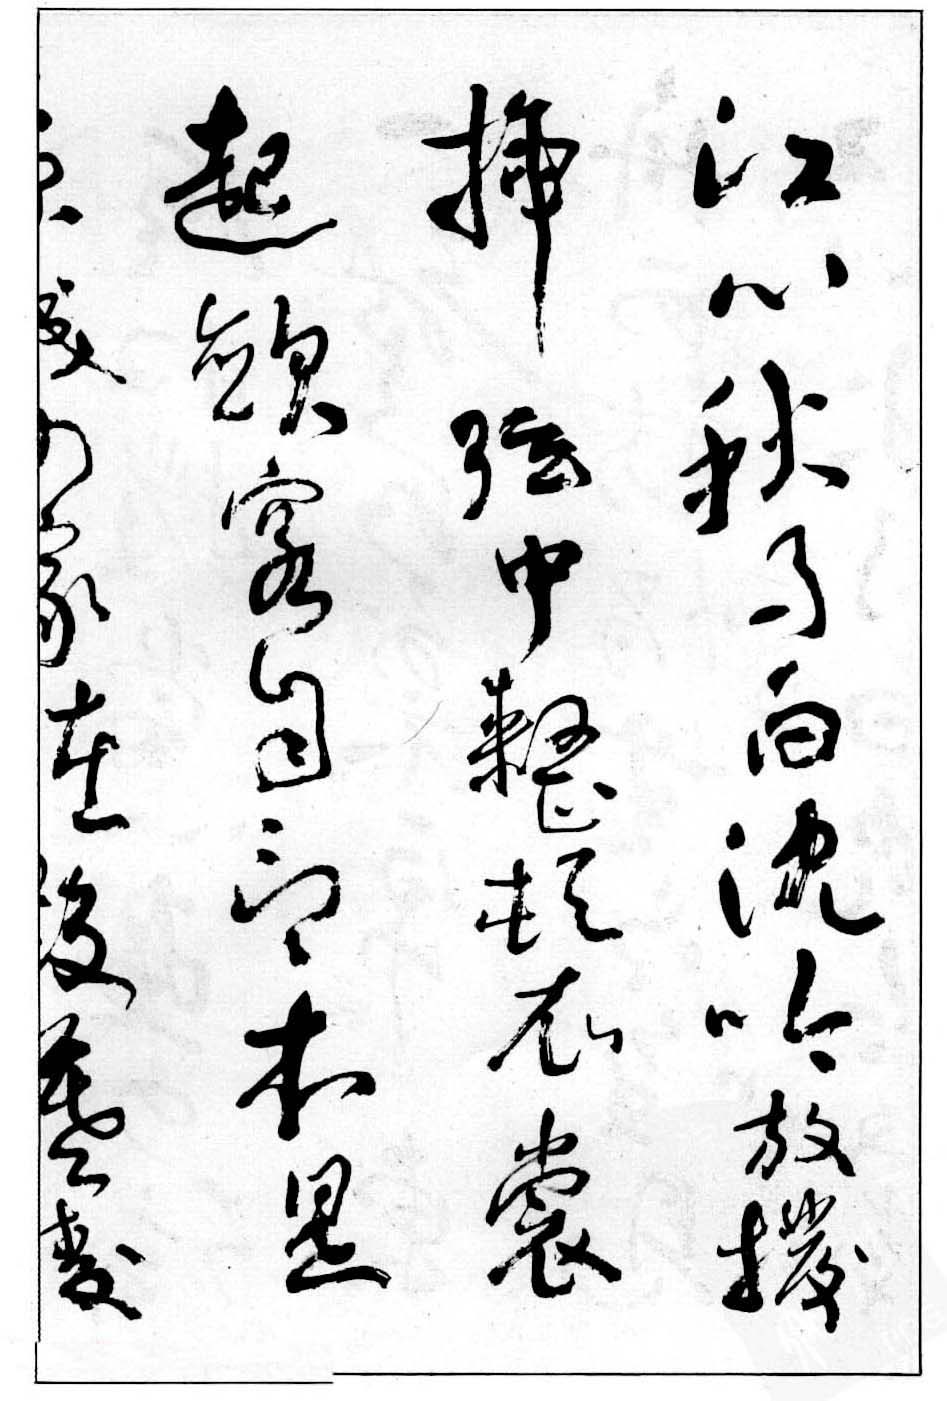 江心秋月白沈吟放撥
插弦中整頓衣裳
起歛容自言本是
京城女家在蝦蟇陵